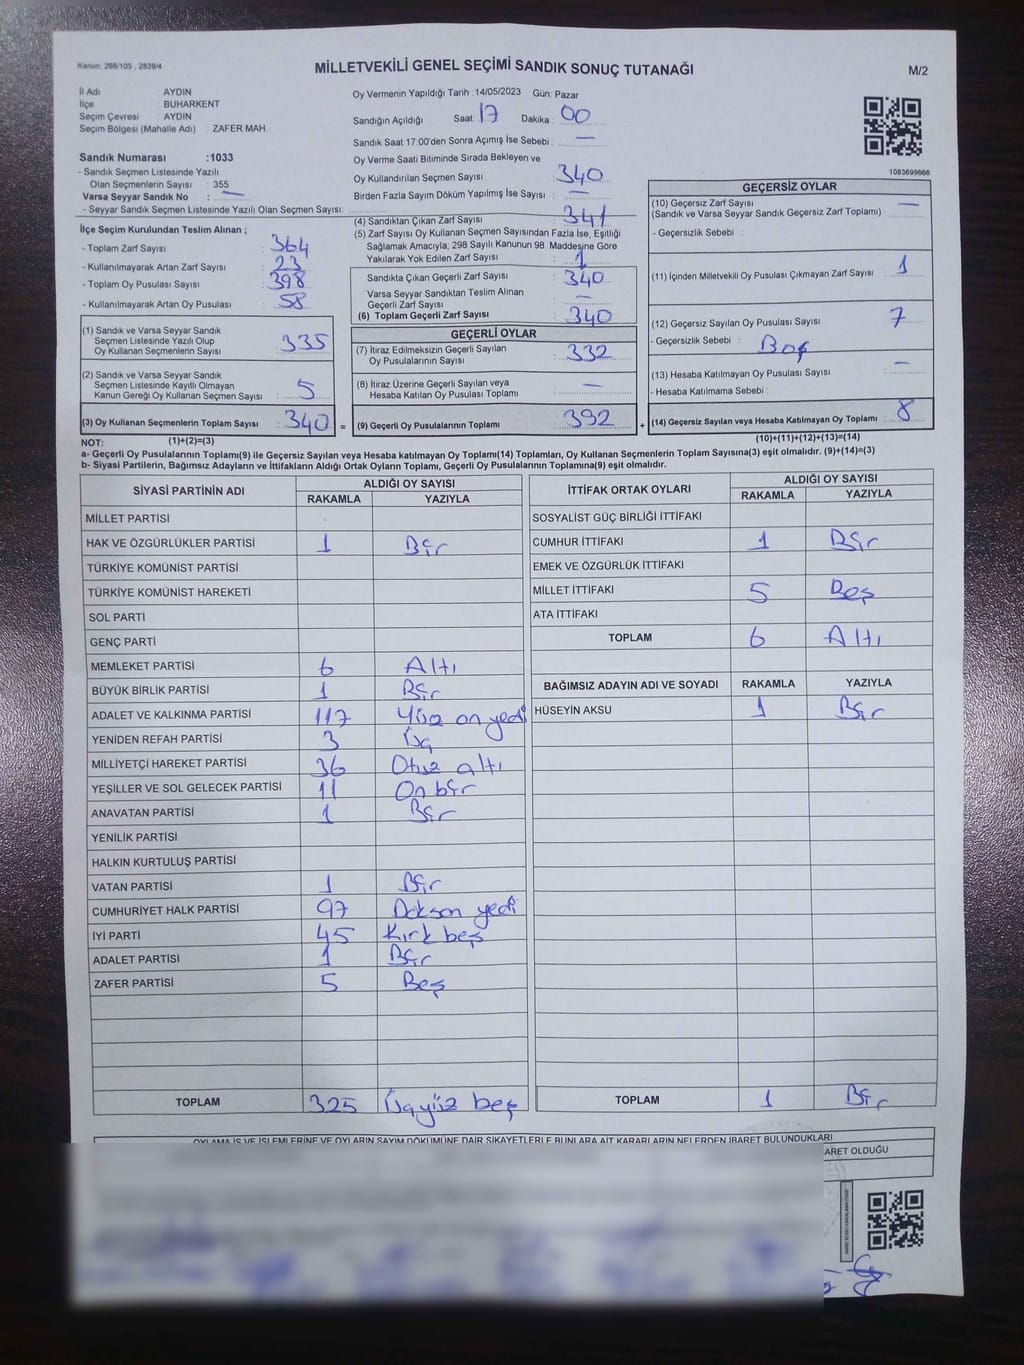 Kanun, 298/105 , 2839/4
MİLLETVEKİLİ GENEL SEÇİMİ SANDIK SONUÇ TUTANAĞI
M/2
İl Adı AYDIN
İlçe BUHARKENT
Seçim Çevresi AYDIN
Seçim Bölgesi (Mahalle Adı) : ZAFER MAH.
Sandık Numarası :1033
- Sandık Seçmen Listesinde Yazılı
Olan Seçmenlerin Sayısı : 355
Varsa Seyyar Sandık No : —
- Seyyar Sandık Seçmen Listesinde Yazılı Olan Seçmen Sayısı:
İlçe Seçim Kurulundan Teslim Alınan ;
- Toplam Zarf Sayısı : 364
- Kullanılmayarak Artan Zarf Sayısı : 23
- Toplam Oy Pusulası Sayısı : 398
- Kullanılmayarak Artan Oy Pusulası : 58
(1) Sandık ve Varsa Seyyar Sandık
Seçmen Listesinde Yazılı Olup
Oy Kullanan Seçmenlerin Sayısı : 335
(2) Sandık ve Varsa Seyyar Sandık
Seçmen Listesinde Kayıtlı Olmayan
Kanun Gereği Oy Kullanan Seçmen Sayısı : 5
(3) Oy Kullanan Seçmenlerin Toplam Sayısı : 340 =
Oy Vermenin Yapıldığı Tarih : 14/05/2023 Gün: Pazar
Sandığın Açıldığı Saat : 17 Dakika : 00
Sandık Saat 17:00'den Sonra Açımış İse Sebebi : —
Oy Verme Saati Bitiminde Sırada Bekleyen ve
Oy Kullandırılan Seçmen Sayısı : 340
Birden Fazla Sayım Döküm Yapılmış İse Sayısı : —
(4) Sandıktan Çıkan Zarf Sayısı : 341
(5) Zarf Sayısı Oy Kullanan Seçmen Sayısından Fazla İse, Eşitliği
Sağlamak Amacıyla, 298 Sayılı Kanunun 98. Maddesine Göre
Yakılarak Yok Edilen Zarf Sayısı : 1
Sandıkta Çıkan Geçerli Zarf Sayısı : 340
Varsa Seyyar Sandıktan Teslim Alınan
Geçerli Zarf Sayısı : —
(6) Toplam Geçerli Zarf Sayısı : 340
GEÇERLİ OYLAR
(7) İtiraz Edilmeksizin Geçerli Sayılan
Oy Pusulalarının Sayısı : 332
(8) İtiraz Üzerine Geçerli Sayılan veya
Hesaba Katılan Oy Pusulası Toplamı : —
(9) Geçerli Oy Pusulalarının Toplamı : 392 +
1083699666
GEÇERSİZ OYLAR
(10) Geçersiz Zarf Sayısı : —
(Sandık ve Varsa Seyyar Sandık Geçersiz Zarf Toplamı)
- Geçersizlik Sebebi :
(11) İçinden Milletvekili Oy Pusulası Çıkmayan Zarf Sayısı : 1
(12) Geçersiz Sayılan Oy Pusulası Sayısı : 7
- Geçersizlik Sebebi : Boş
(13) Hesaba Katılmayan Oy Pusulası Sayısı : —
- Hesaba Katılmama Sebebi :
(14) Geçersiz Sayılan veya Hesaba Katılmayan Oy Toplamı : 8
NOT: (1)+(2)=(3) (10)+(11)+(12)+(13)=(14)
a- Geçerli Oy Pusulalarının Toplamı(9) ile Geçersiz Sayılan veya Hesaba katılmayan Oy Toplamı(14) Toplamları, Oy Kullanan Seçmenlerin Toplam Sayısına(3) eşit olmalıdır. (9)+(14)=(3)
b- Siyasi Partilerin, Bağımsız Adayların ve İttifakların Aldığı Ortak Oyların Toplamı, Geçerli Oy Pusulalarının Toplamına(9) eşit olmalıdır.
SİYASİ PARTİNİN ADI ALDIĞI OY SAYISI
RAKAMLA YAZIYLA
MİLLET PARTİSİ
HAK VE ÖZGÜRLÜKLER PARTİSİ 1 Bir
TÜRKİYE KOMÜNİST PARTİSİ
TÜRKİYE KOMÜNİST HAREKETİ
SOL PARTİ
GENÇ PARTİ
MEMLEKET PARTİSİ 6 Altı
BÜYÜK BİRLİK PARTİSİ 1 Bir
ADALET VE KALKINMA PARTİSİ 117 Yüz on yedi
YENİDEN REFAH PARTİSİ 3 Üç
MİLLİYETÇİ HAREKET PARTİSİ 36 Otuz altı
YEŞİLLER VE SOL GELECEK PARTİSİ 11 On bir
ANAVATAN PARTİSİ 1 Bir
YENİLİK PARTİSİ
HALKIN KURTULUŞ PARTİSİ
VATAN PARTİSİ 1 Bir
CUMHURİYET HALK PARTİSİ 97 Doksan yedi
İYİ PARTİ 45 Kırk beş
ADALET PARTİSİ 1 Bir
ZAFER PARTİSİ 5 Beş
TOPLAM 325 Üçyüz beş
İTTİFAK ORTAK OYLARI ALDIĞI OY SAYISI
RAKAMLA YAZIYLA
SOSYALİST GÜÇ BİRLİĞİ İTTİFAKI
CUMHUR İTTİFAKI 1 Bir
EMEK VE ÖZGÜRLÜK İTTİFAKI
MİLLET İTTİFAKI 5 Beş
ATA İTTİFAKI
TOPLAM 6 Altı
BAĞIMSIZ ADAYIN ADI VE SOYADI RAKAMLA YAZIYLA
HÜSEYİN AKSU 1 Bir
TOPLAM 1 Bir
OYLAMA İŞ VE İŞLEMLERİNE VE OYLARIN SAYIM DÖKÜMÜNE DAİR ŞİKAYETLERLE BUNLARA AİT KARARLARIN NELERDEN İBARET BULUNDUKLARI
ARET OLDUĞU